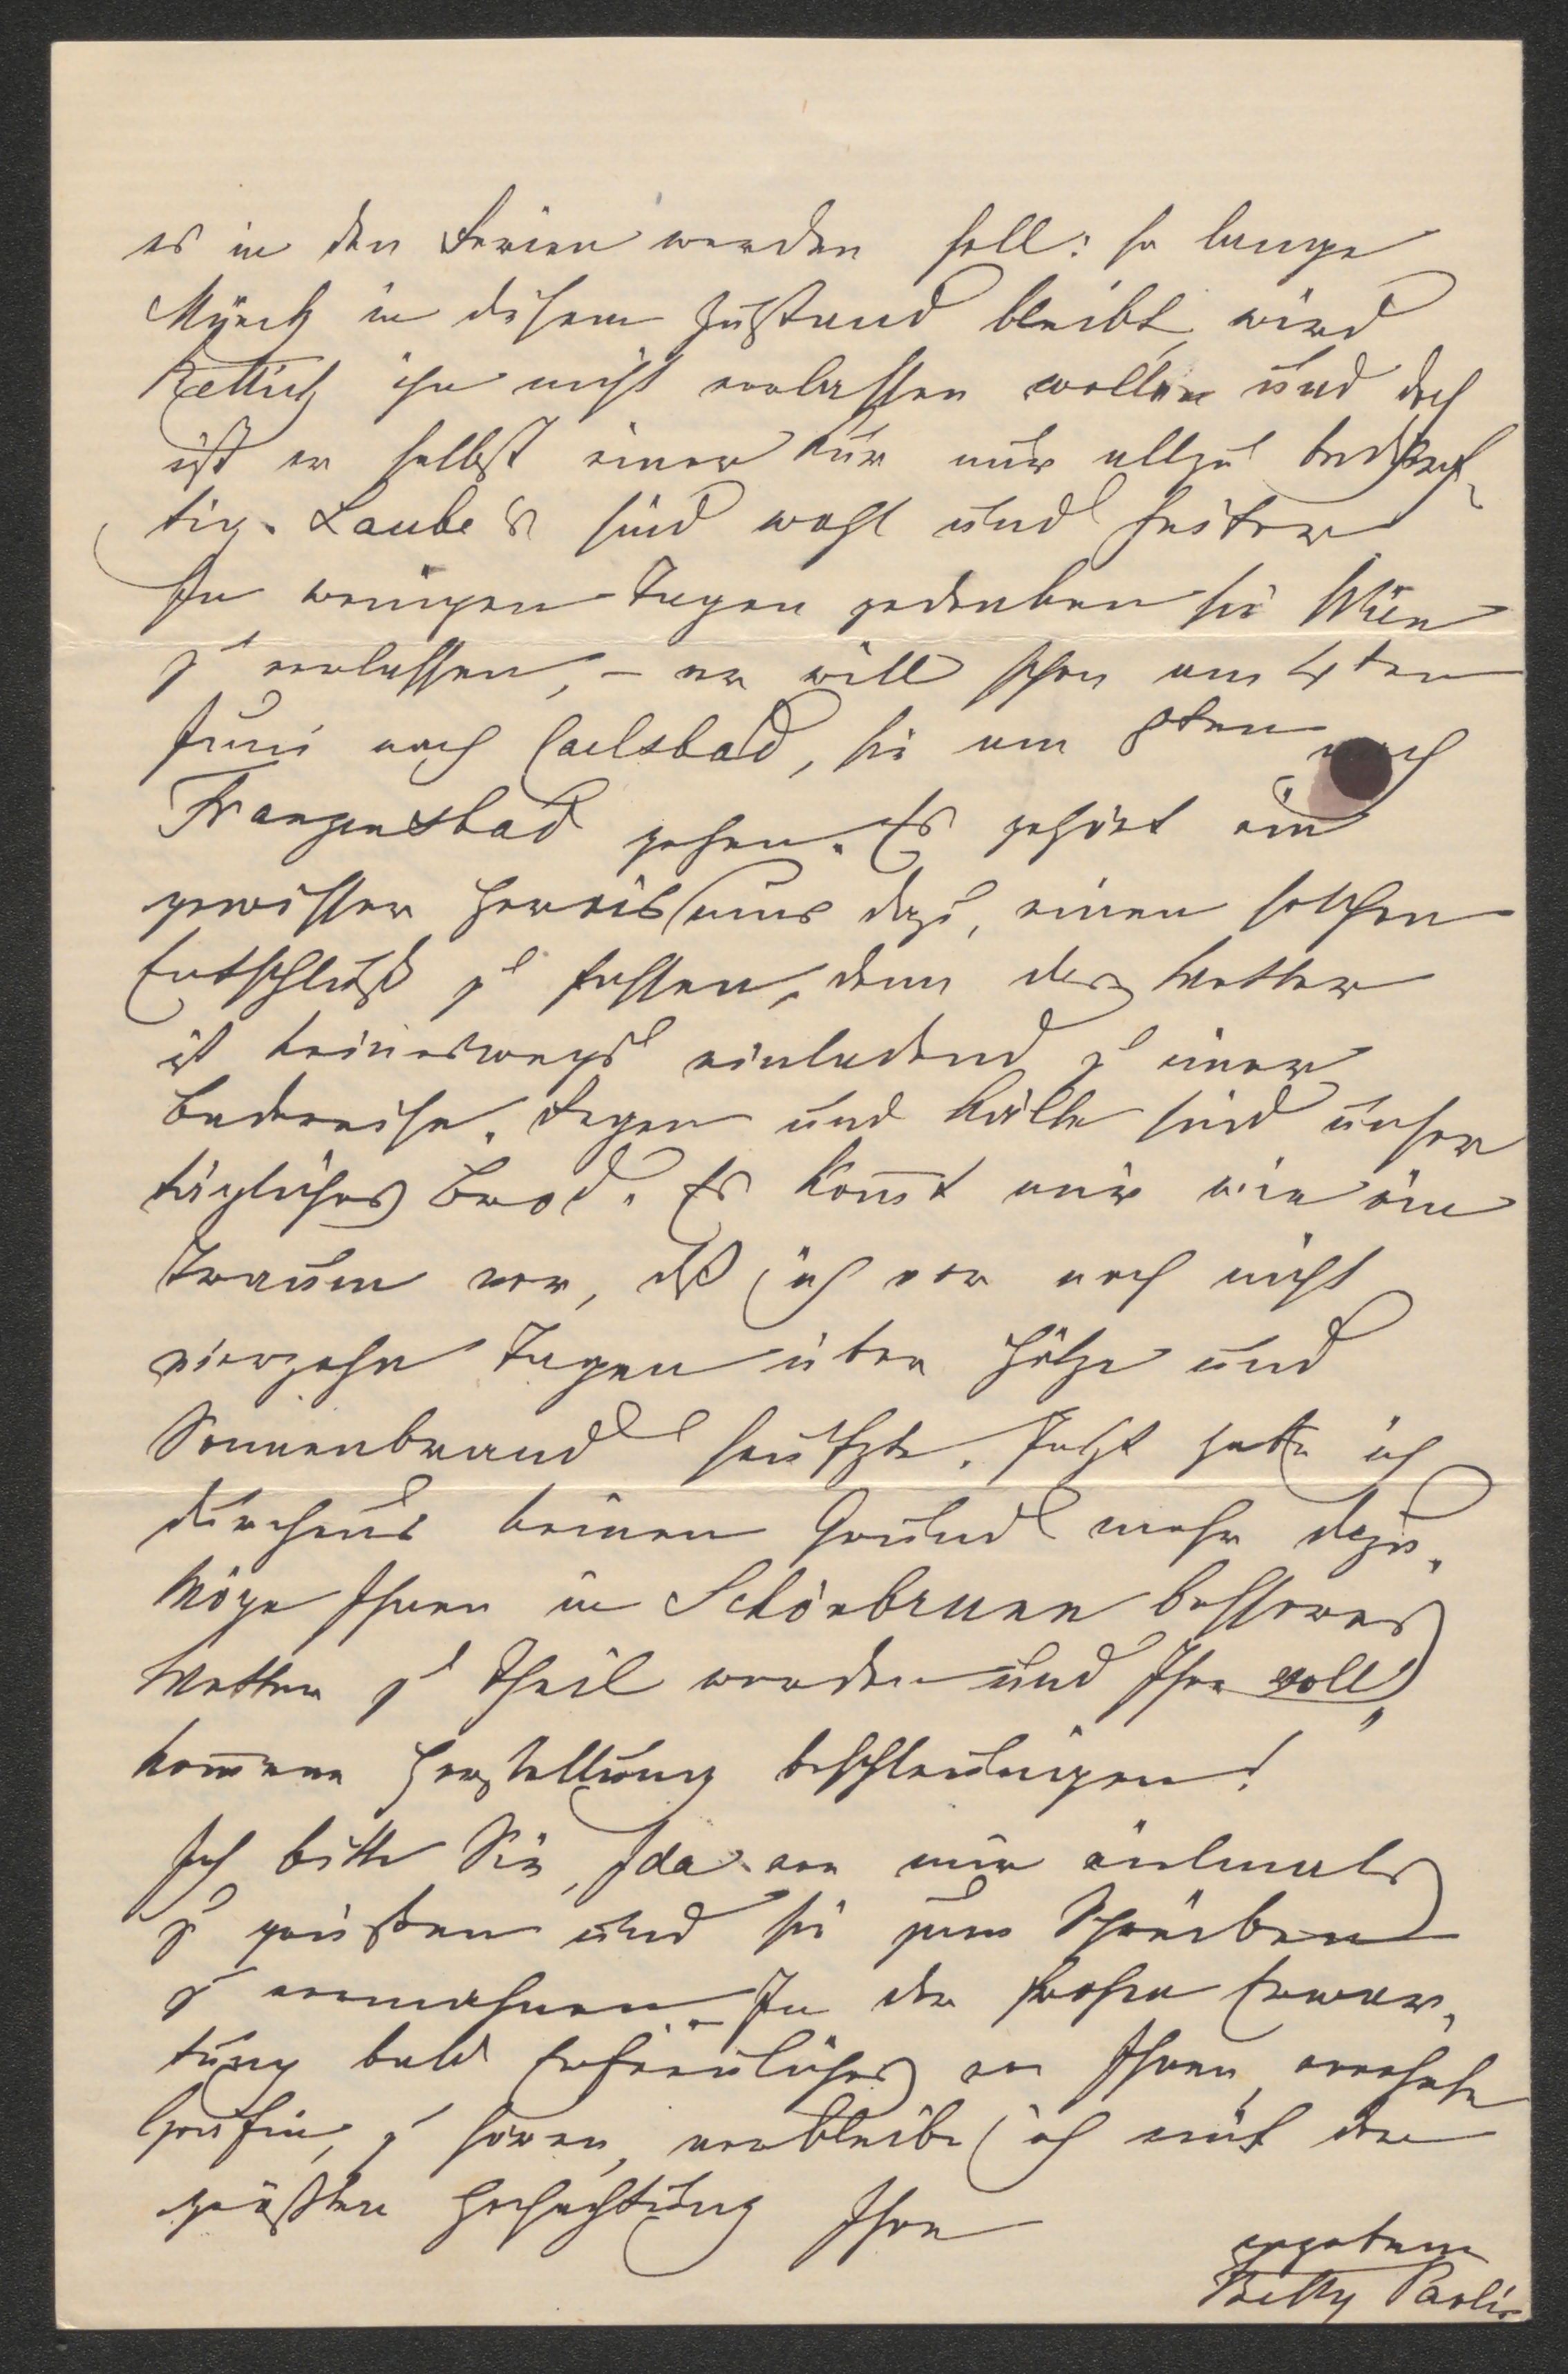 es in den Ferien werden soll: so lange
Münch in diesem Zustand bleibt, wird
Rettich ihn nicht verlassen wollen und doch
ist er selbst einer Kur nur allzu bedürf-
tig. Laube's sind wohl und heiter
In wenigen Tagen gedenken sie Wien
zu verlassen, – er will schon am 4ten
Juni nach Carlsbad, sie am 8ten nach
Franzensbad gehen. Es gehört ein
gewisser Heroismus dazu, einen solchen
Entschluß zu fassen, denn das Wetter
ist keineswegs einladend zu einer
Badereise. Regen und Kälte sind unser
tägliches Brod. Es kom̄t mir wie ein
Traum vor, daß ich vor noch nicht
vierzehn Tagen über Hitze und
Sonnenbrand seufzte. Jetzt hätte ich
durchaus keinen Grund mehr dazu.
Möge Ihnen in Schönbrunn besseres
Wetter zu Theil werden und Ihre voll-
kom̄ene Herstellung beschleunigen!
Ich bitte Sie, Ida von mir vielmals
zu grüßen und sie zum Schreiben
zu ermahnen. In der frohen Erwar-
tung bald Erfreuliches von Ihnen, verehrte
Gräfin, zu hören, verbleibe ich mit der
größten Hochachtung Ihre
ergebene
Betty Paoli